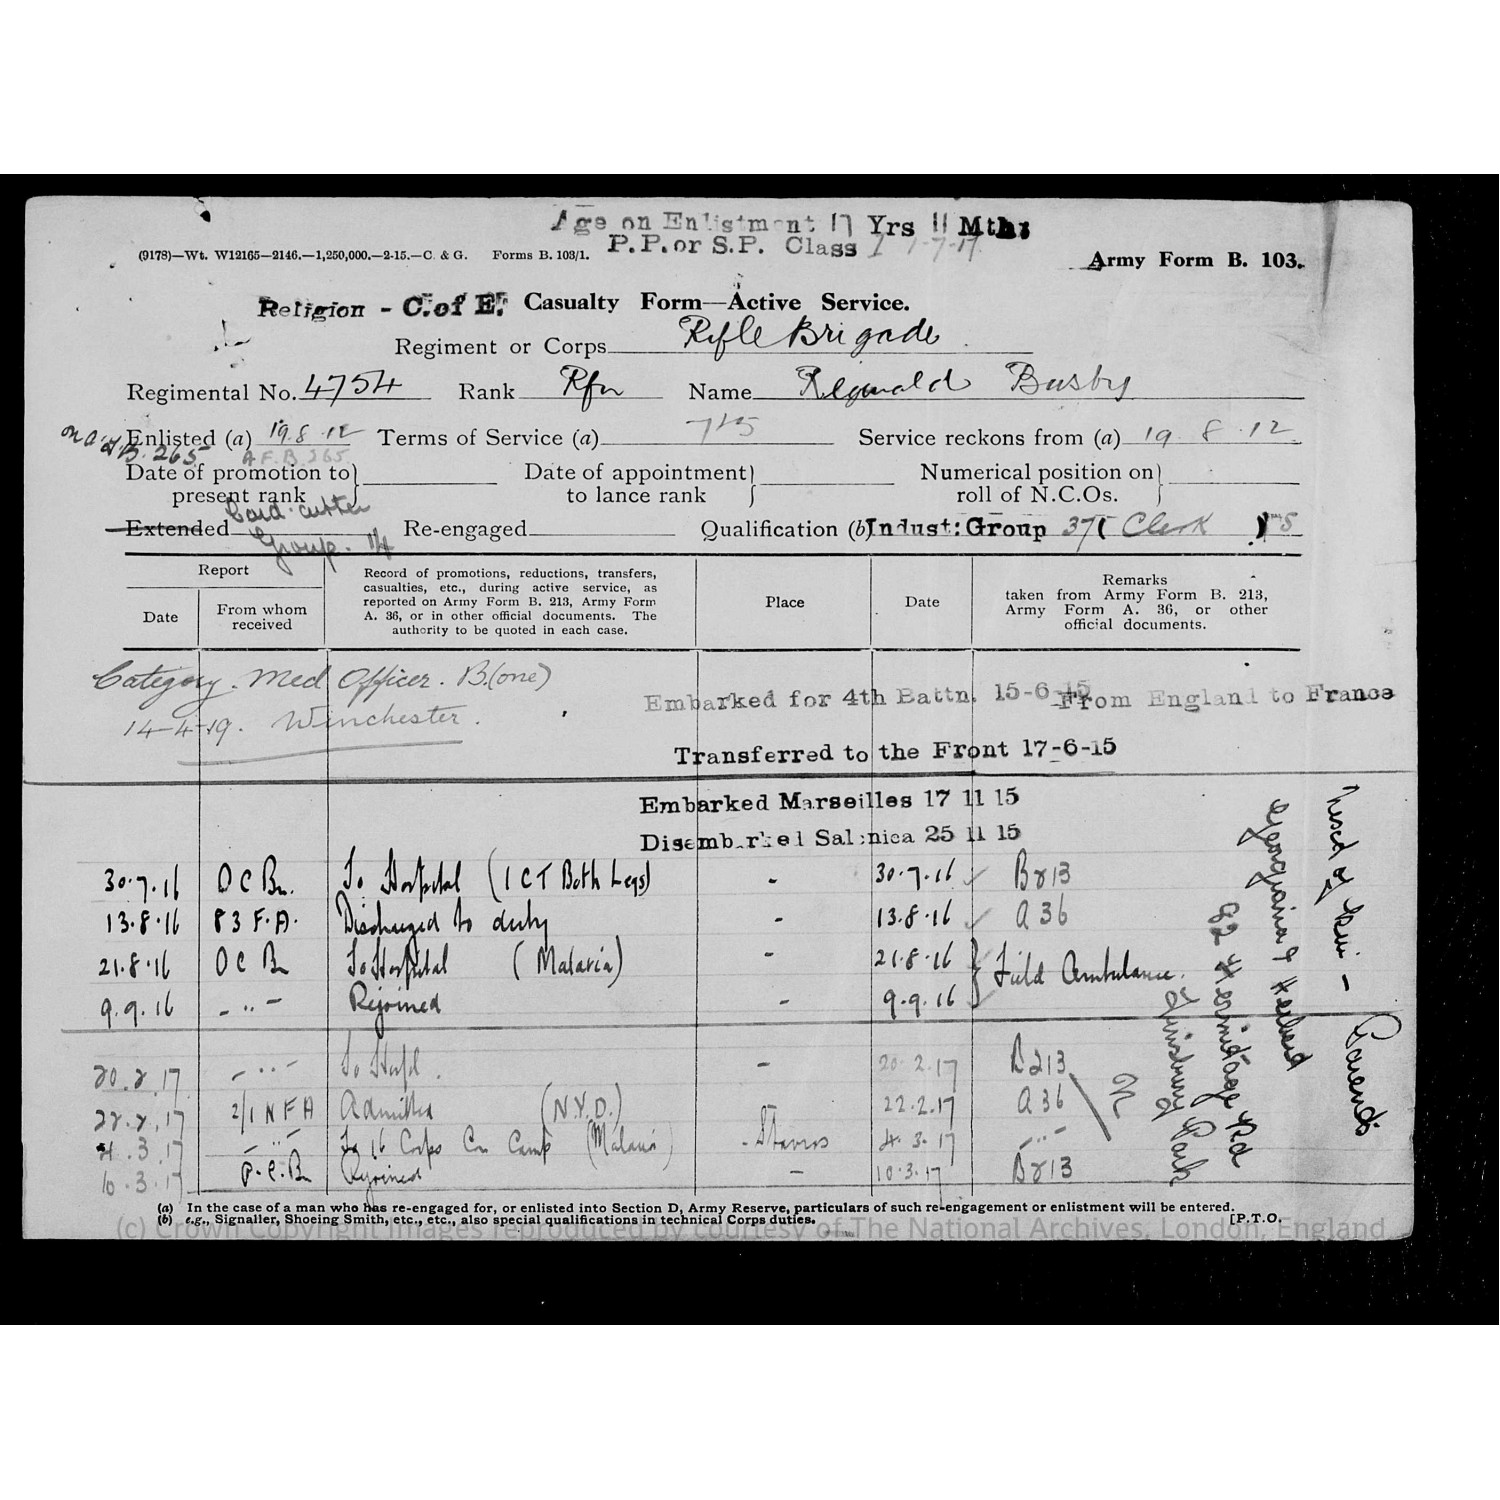 Age on Enlistment 17 Yrs 11 Mths
P.P. or S.P. Class I 1-7-17
(9178)—Wt. W12165—2146.—1,250,000.—2-15.—C. & G. Forms B. 103/1.
Army Form B. 103.
Religion - C. of E. Casualty Form—Active Service.
Regiment or Corps Rifle Brigade
Regimental No. 4754 Rank Rfn Name Reginald Busby
Enlisted (a) 19.8.12 Terms of Service (a) 7+5 Service reckons from (a) 19 8.12
B. 265 A.F.B. 265
Date of promotion to present rank
Date of appointment to lance rank
Numerical position on roll of N.C.Os.
Card cutter
Extended Re-engaged Qualification (b) Indust: Group 37 ( Clerk )
Group. 14
Report
Date
From whom received
Record of promotions, reductions, transfers,
casualties, etc., during active service, as
reported on Army Form B. 213, Army Form
A. 36, or in other official documents. The
authority to be quoted in each case.
Place
Date
Remarks
taken from Army Form B. 213,
Army Form A. 36, or other
official documents.
Category. Med Officer. B.(one)
14-4-19. Winchester.
Embarked for 4th Battn. 15-6-15 From England to France
Transferred to the Front 17-6-15
Embarked Marseilles 17 11 15
Disembarked Salonica 25 11 15
30.7.16 O C Bn. To Hospital (I C T Both Legs) - 30.7.16 B213
13.8.16 83 F.A. Discharged to duty - 13.8.16 A 36
21.8.16 O C Bn To Hospital (Malaria) - 21.8.16 Field Ambulance.
9.9.16 - " - Rejoined - 9.9.16
20.2.17 - " - To Hospl. - 20.2.17 B213
22.2.17 2/1 N F A Admitted (N.Y.D.) - 22.2.17 A 36
4.3.17 - " - To 16 Corps Cn Camp (Malaria) - Stavros 4.3.17 - " -
10.3.17 O.C.Bn Rejoined - 10.3.17 B213
Next of kin - Parents
Georgiana & Herbert
82 Hermitage Rd
Finsbury Park
(a) In the case of a man who has re-engaged for, or enlisted into Section D, Army Reserve, particulars of such re-engagement or enlistment will be entered.
(b) e.g., Signaller, Shoeing Smith, etc., etc., also special qualifications in technical Corps duties. [P.T.O.
(c) Crown Copyright Images reproduced by courtesy of The National Archives, London, England